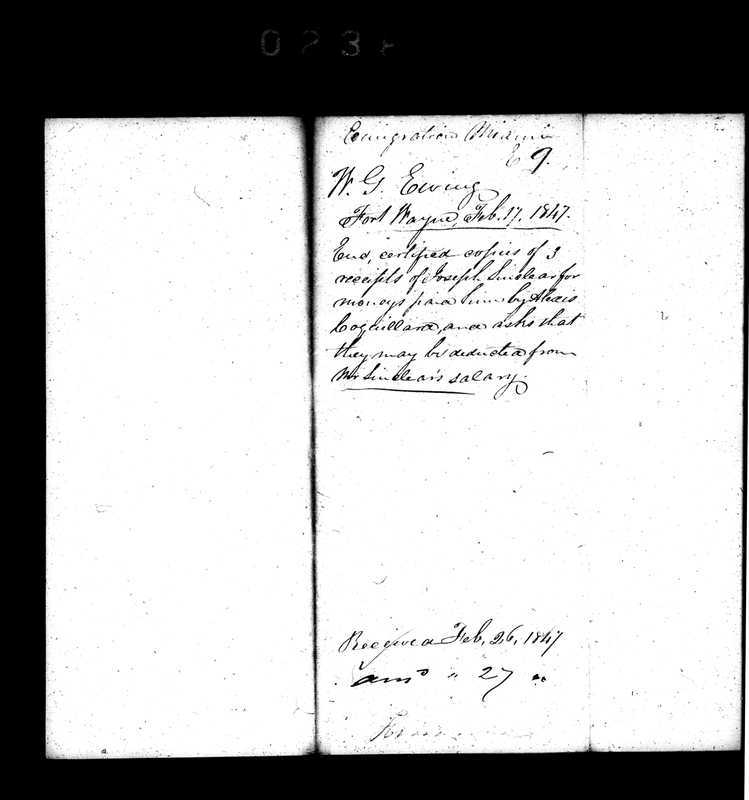 023
Emigration Miami
E 9.
W. G. Ewing
Fort Wayne, Feb. 17. 1847.
Enc, certified copies of 3
receipts of Joseph Sinclear for
moneys paid him by Alexis
Coquillard, and asks that
they may be deducted from
Mr Sinclear's salary.
Received Feb. 26, 1847
ansd " 27 "